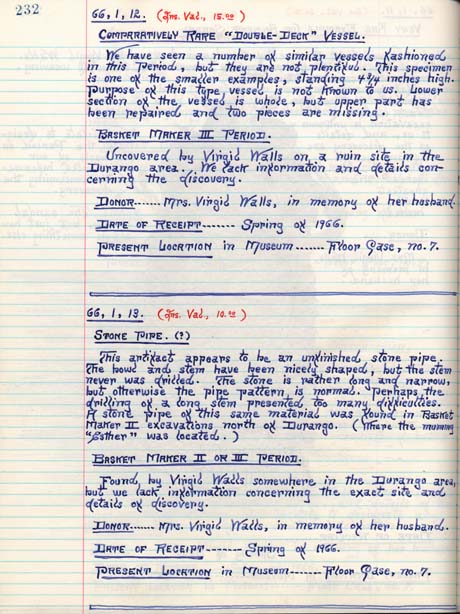 232
66,1,12. (Ins. Val., 15.00)
Comparatively Rare "Double-Deck" Vessel.
We have seen a number of similar vessels fashioned
in this Period, but they are not plentiful. This specimen
is one of the smaller examples, standing 4¼ inches high.
Purpose of this type vessel is not known to us. Lower
section of the vessel is whole, but upper part has
been repaired and two pieces are missing.
Basket Maker III Period.
Uncovered by Virgil Walls on a ruin site in the
Durango area. We lack information and details con-
cerning the discovery.
Donor....... Mrs. Virgil Walls, in memory of her husband.
Date of Receipt-------- Spring of 1966.
Present Location in Museum------- Floor Case, no. 7.
66,1,13. (Ins. Val., 10.00)
Stone Pipe. (?)
This artifact appears to be an unfinished stone pipe.
The bowl and stem have been nicely shaped, but the stem
never was drilled. The stone is rather long and narrow,
but otherwise the pipe pattern is normal. Perhaps the
drilling of a long stem presented too many difficulties.
A stone pipe of this same material was found in Basket
Maker II excavations north of Durango. (Where the mummy
"Esther" was located.)
Basket Maker II or III Period.
Found, by Virgil Walls somewhere in the Durango area,
but we lack information concerning the exact site and
details of discovery.
Donor....... Mrs. Virgil Walls, in memory of her husband.
Date of Receipt------- Spring of 1966.
Present Location in Museum------- Floor Case, no. 7.